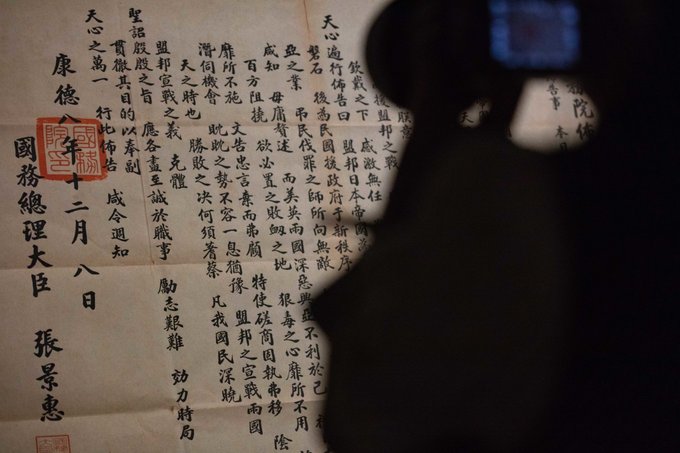 務院佈
告事 本月
天
後盟邦之戰
感激無任
欽戴之下 盟邦日本帝國
天心遍行佈告曰
磐石 後為民國援政府于新秩序
亞之業 弔民伐罪之師所向無敵
咸知 毋庸贅述 而美英兩國深惡興亞不利於己
百方阻撓 欲必置之敗衄之地 狠毒之心靡所不用
靡所不施 文告忠言棄而弗顧 特使磋商固執弗移 陰
潛伺機會 眈眈之勢不容一息猶豫 盟邦之宣戰兩國
天之時也 勝敗之決何須蓍蔡 凡我國民深曉
盟邦宣戰之義 克體
聖詔殷殷之旨 應各盡至誠於職事 勵志艱難 効力時局
貫徹其目的以奉副
天心之萬一 行此佈告 咸令週知
康德八年十二月八日
國務院印
國務總理大臣 張景惠